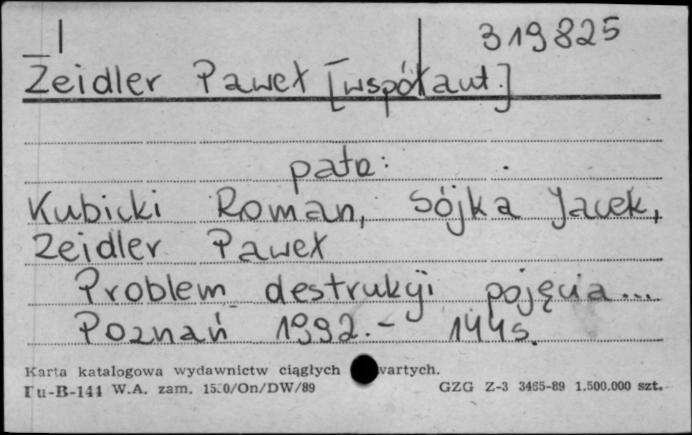 319825
Zeidler Paweł [współaut.]
patrz:
Kubicki Roman, Sójka Jacek,
Zeidler Paweł
Problem destrukcji pojęcia...
Poznań 1992.- 144s.
Karta katalogowa wydawnictw ciągłych wartych.
Pu-B-141 W.A. zam. 15 0/On/DW/89 GZG Z-3 3465-89 1.500.000 szt.